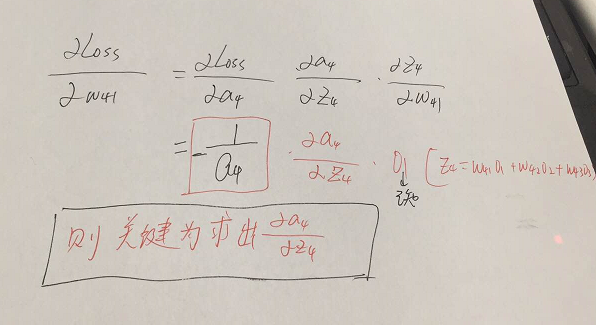 ∂Loss/∂w₄₁ = ∂Loss/∂a₄ · ∂a₄/∂z₄ · ∂z₄/∂w₄₁
= -1/a₄ · ∂a₄/∂z₄ · O₁ [z₄=w₄₁O₁+w₄₂O₂+w₄₃O₃
↓
已知
则 关键为求出 ∂a₄/∂z₄